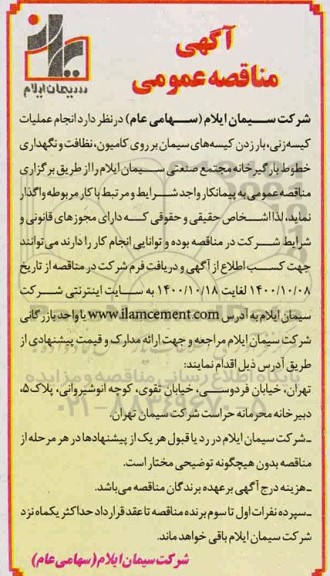 آگهی
مناقصه عمومی
سیمان ایلام
شرکت سیمان ایلام (سهامی عام) در نظر دارد انجام عملیات
کیسه‌زنی، بارزدن کیسه‌های سیمان بر روی کامیون، نظافت و نگهداری
خطوط بارگیرخانه مجتمع صنعتی سیمان ایلام را از طریق برگزاری
مناقصه عمومی به پیمانکار واجد شرایط و مرتبط با کار مربوطه واگذار
نماید، لذا اشخاص حقیقی و حقوقی که دارای مجوزهای قانونی و
شرایط شرکت در مناقصه بوده و توانایی انجام کار را دارند می‌توانند
جهت کسب اطلاع از آگهی و دریافت فرم شرکت در مناقصه از تاریخ
۱۴۰۰/۱۰/۰۸ لغایت ۱۴۰۰/۱۰/۱۸ به سایت اینترنتی شرکت
سیمان ایلام به آدرس www.ilamcement.com یا واحد بازرگانی
شرکت سیمان ایلام مراجعه و جهت ارائه مدارک و قیمت پیشنهادی از
طریق آدرس ذیل اقدام نمایند:
تهران، خیابان فردوسی، خیابان تقوی، کوچه انوشیروانی، پلاک ۵،
دبیرخانه محرمانه حراست شرکت سیمان تهران.
ـ شرکت سیمان ایلام در رد یا قبول هر یک از پیشنهادها در هر مرحله از
مناقصه بدون هیچگونه توضیحی مختار است.
ـ هزینه درج آگهی بر عهده برندگان مناقصه می‌باشد.
ـ سپرده نفرات اول تا سوم برنده مناقصه تا عقد قرارداد حداکثر یکماه نزد
شرکت سیمان ایلام باقی خواهد ماند.
شرکت سیمان ایلام (سهامی عام)